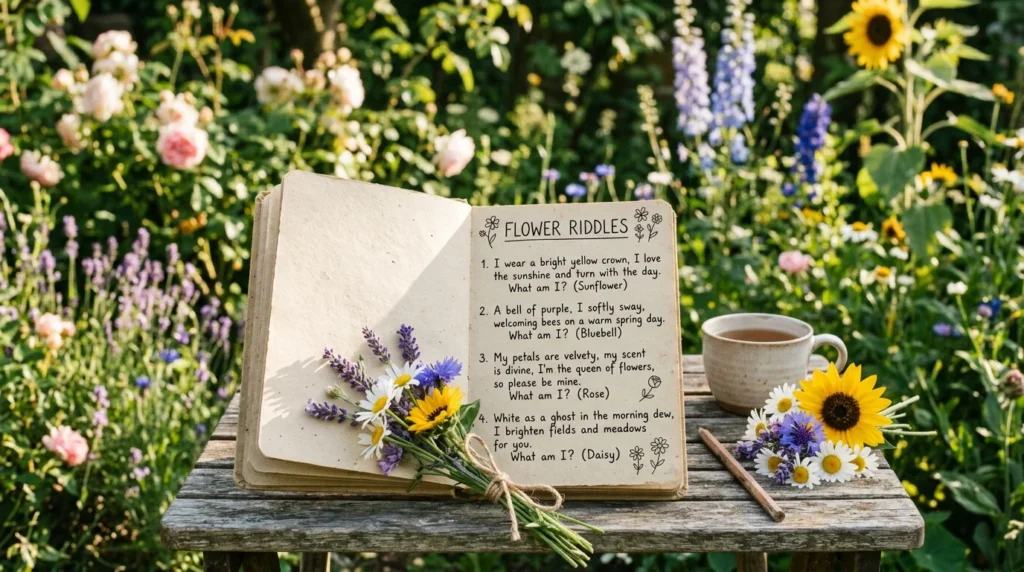 FLOWER RIDDLES
1. I wear a bright yellow crown, I love
the sunshine and turn with the day.
What am I? (Sunflower)
2. A bell of purple, I softly sway,
welcoming bees on a warm spring day.
What am I? (Bluebell)
3. My petals are velvety, my scent
is divine, I'm the queen of flowers,
so please be mine.
What am I? (Rose)
4. White as a ghost in the morning dew,
I brighten fields and meadows
for you.
What am I? (Daisy)